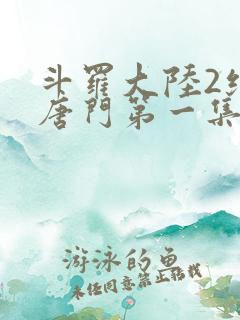 斗羅大陸2絶
唐門第一集
游泳的魚
未任同意禁止转载